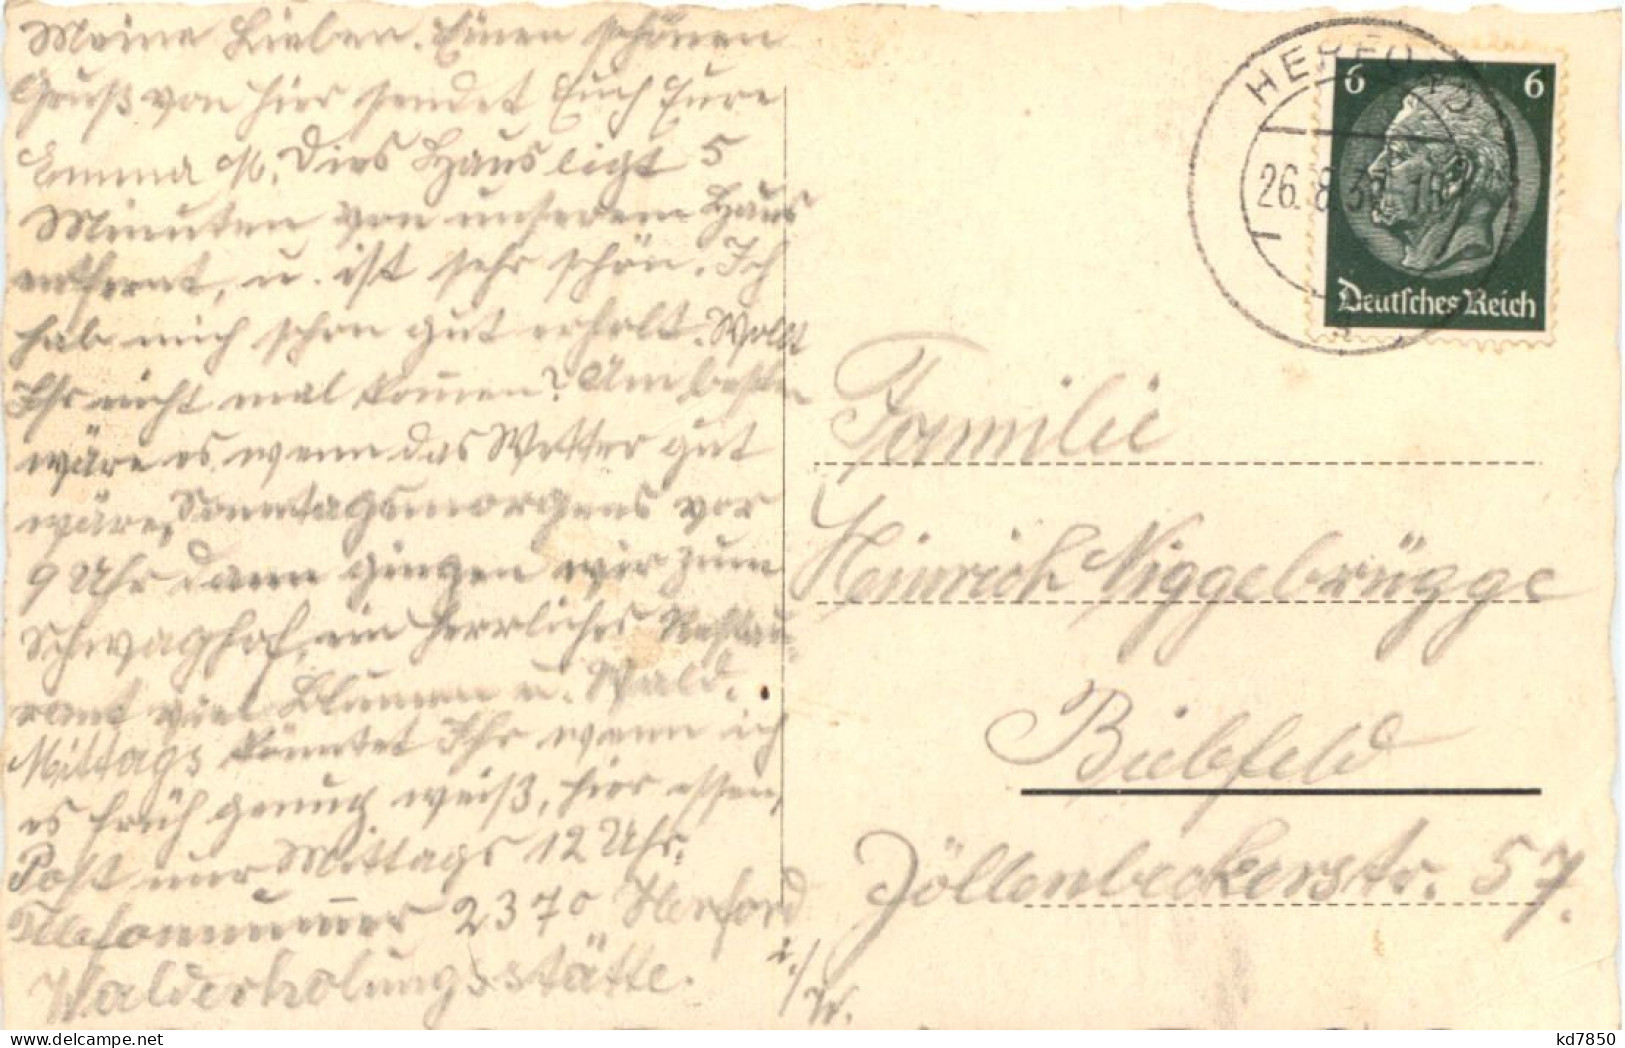 Meine Lieben. Einen schönen
Gruß von hier sendet Euch Eure
Emma N. Dies Haus ligt 5
Minuten von unserem Haus
entfernt, u. ist sehr schön. Ich
hab mich schon gut erholt. Wollt
Ihr nicht mal kommen? Am besten
wäre es wenn das Wetter gut
wäre, Sonntagsmorgens vor
9 Uhr dann gingen wir zum
Schwaghof, ein herrliches Restau-
rant viel Blumen u. Wald.
Mittags könntet Ihr wenn ich
es früh genug weiß, hier essen,
Post nur Mittags 12 Uhr.
Telefonnummer 2370 Herford
Walderholungsstätte. i./W.
HERFORD
26.8.37.-18
6 6
Deutsches Reich
Familie
Heinrich Niggebrügge
Bielefeld
Jöllenbeckerstr. 57.
kd7850